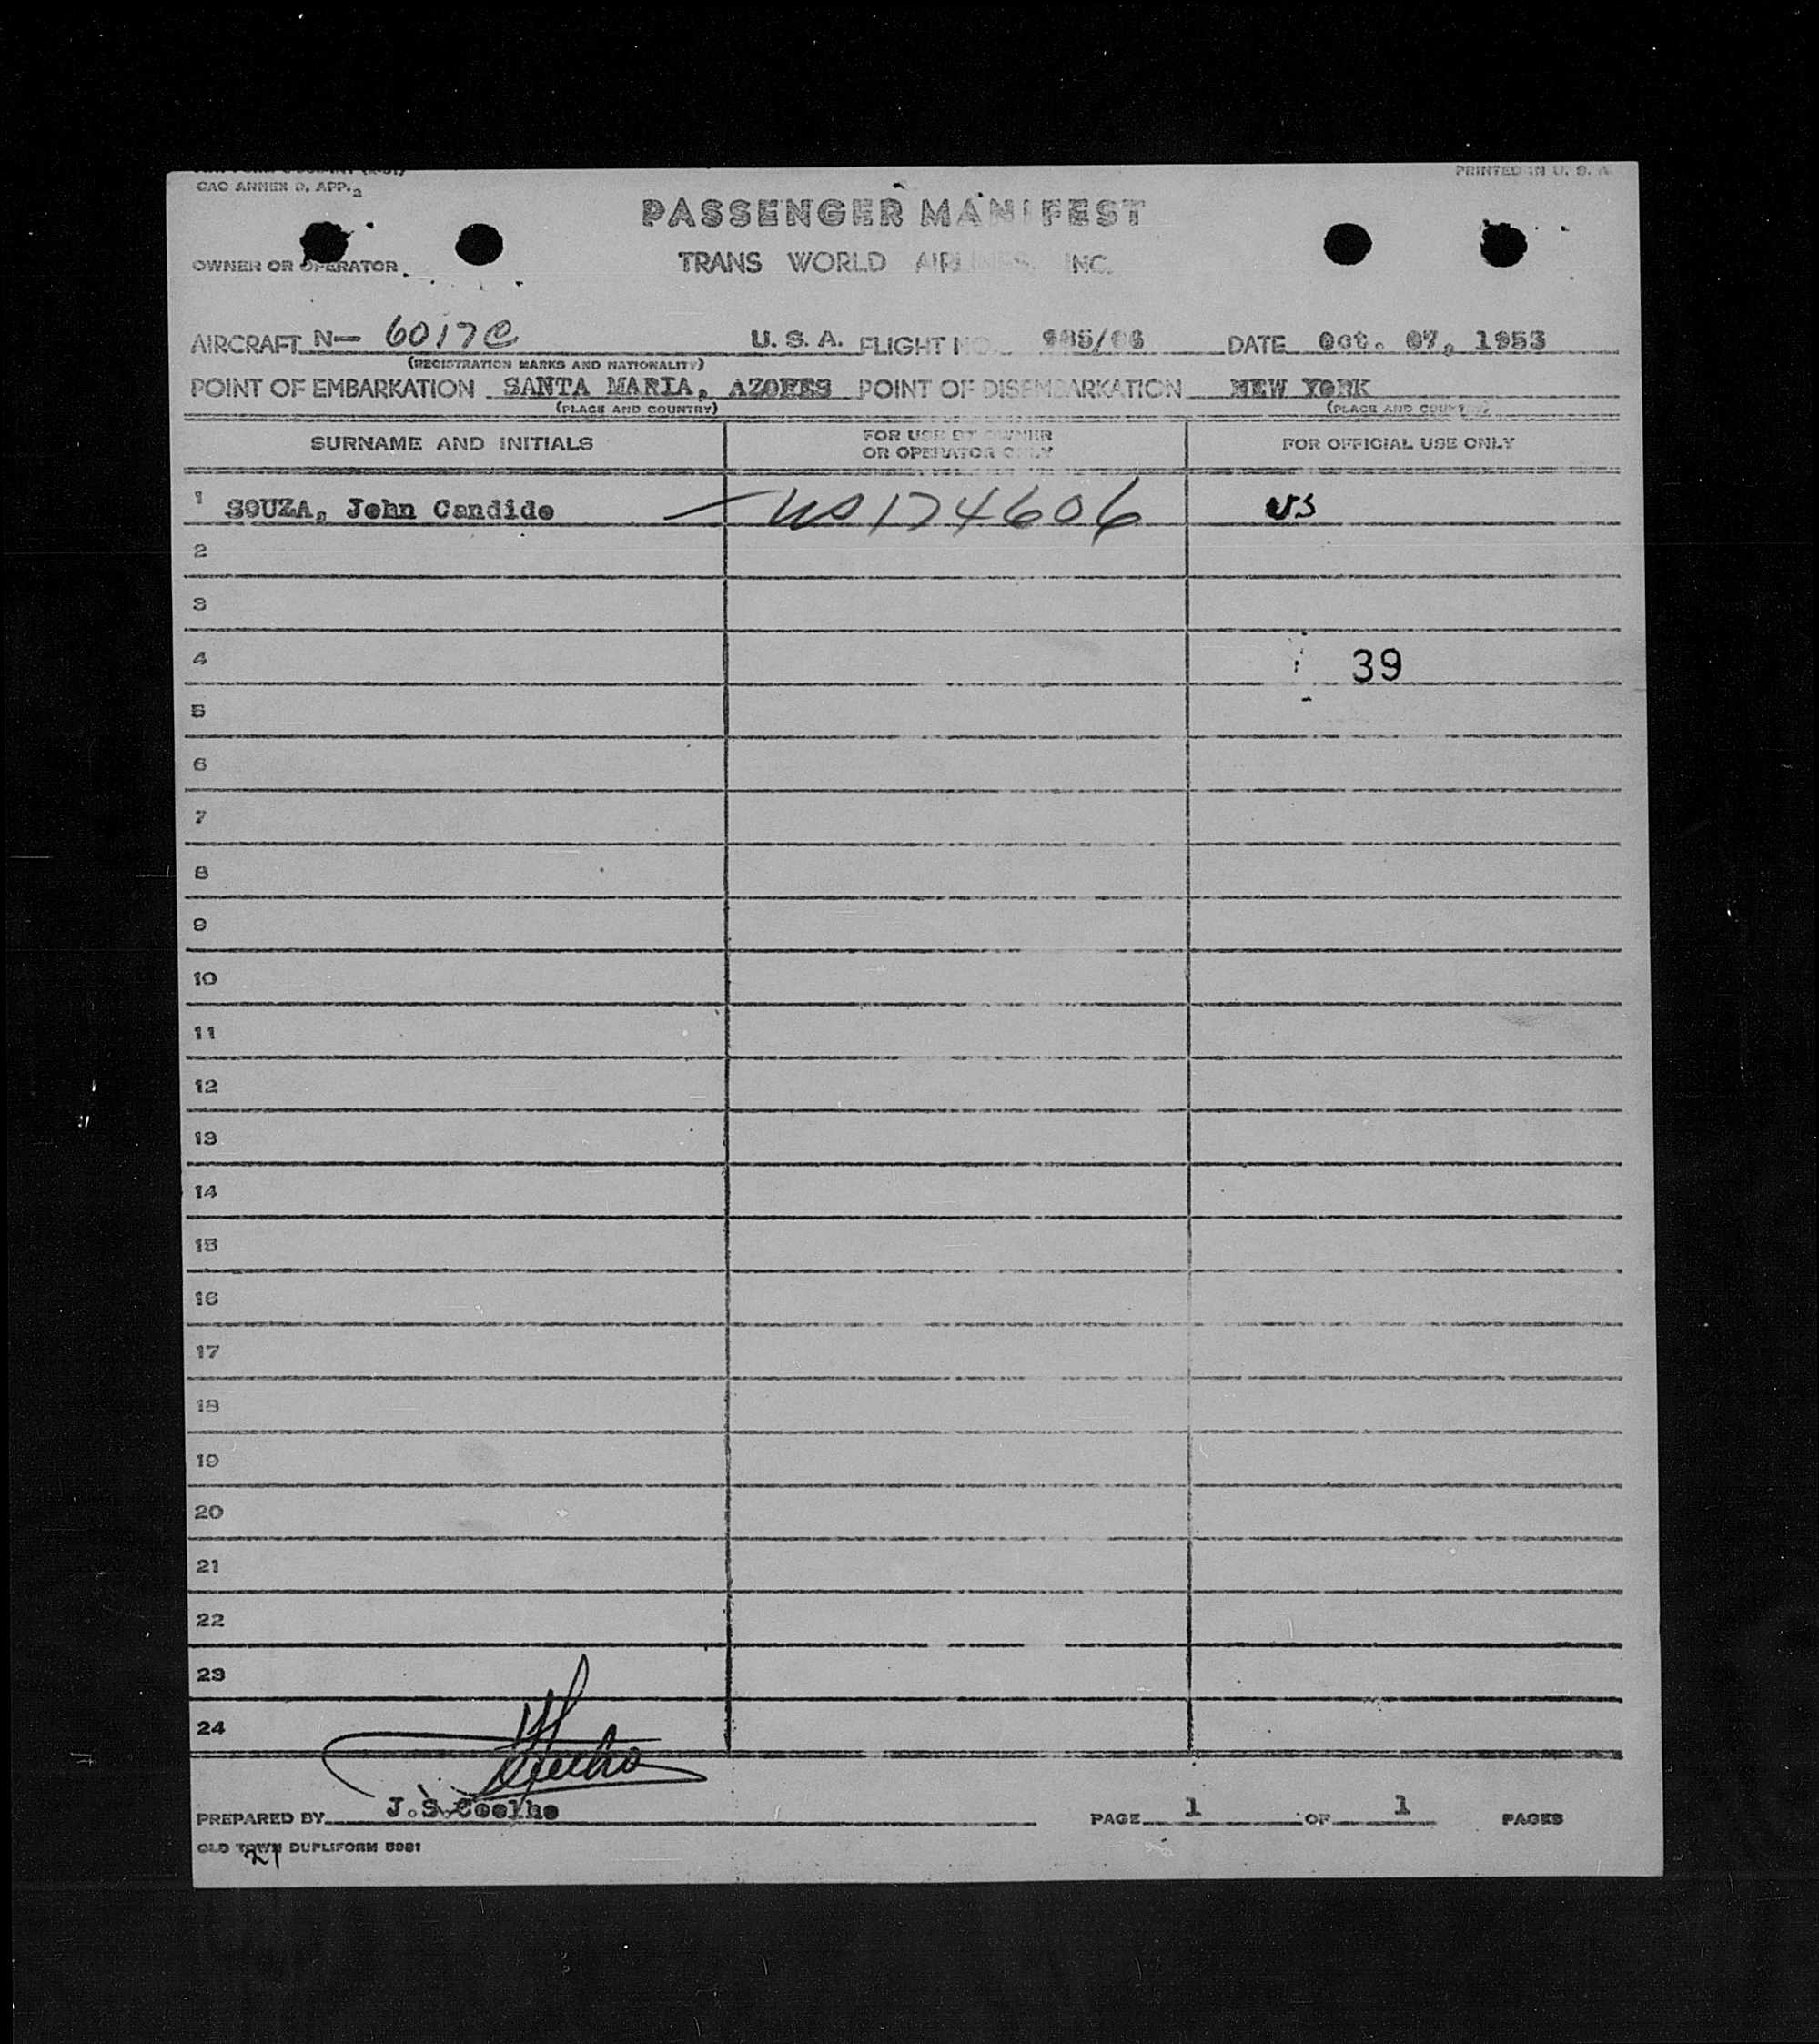 CAO ANNEX D, APP. 2
PRINTED IN U. S. A.
PASSENGER MANIFEST
OWNER OR OPERATOR
TRANS WORLD AIRLINES, INC.
AIRCRAFT N— 6017C U. S. A. FLIGHT NO. DATE Oct. 07, 1953
(REGISTRATION MARKS AND NATIONALITY)
POINT OF EMBARKATION SANTA MARIA, AZORES POINT OF DISEMBARKATION NEW YORK
(PLACE AND COUNTRY) (PLACE AND COUNTRY)
SURNAME AND INITIALS FOR USE BY OWNER OR OPERATOR ONLY FOR OFFICIAL USE ONLY
1 SOUZA, John Candido — US 174606 US
2
3
4 39
5
6
7
8
9
10
11
12
13
14
15
16
17
18
19
20
21
22
23
24
PREPARED BY J.S.Coelho PAGE 1 OF 1 PAGES
OLD TOWN DUPLIFORM 5981
21